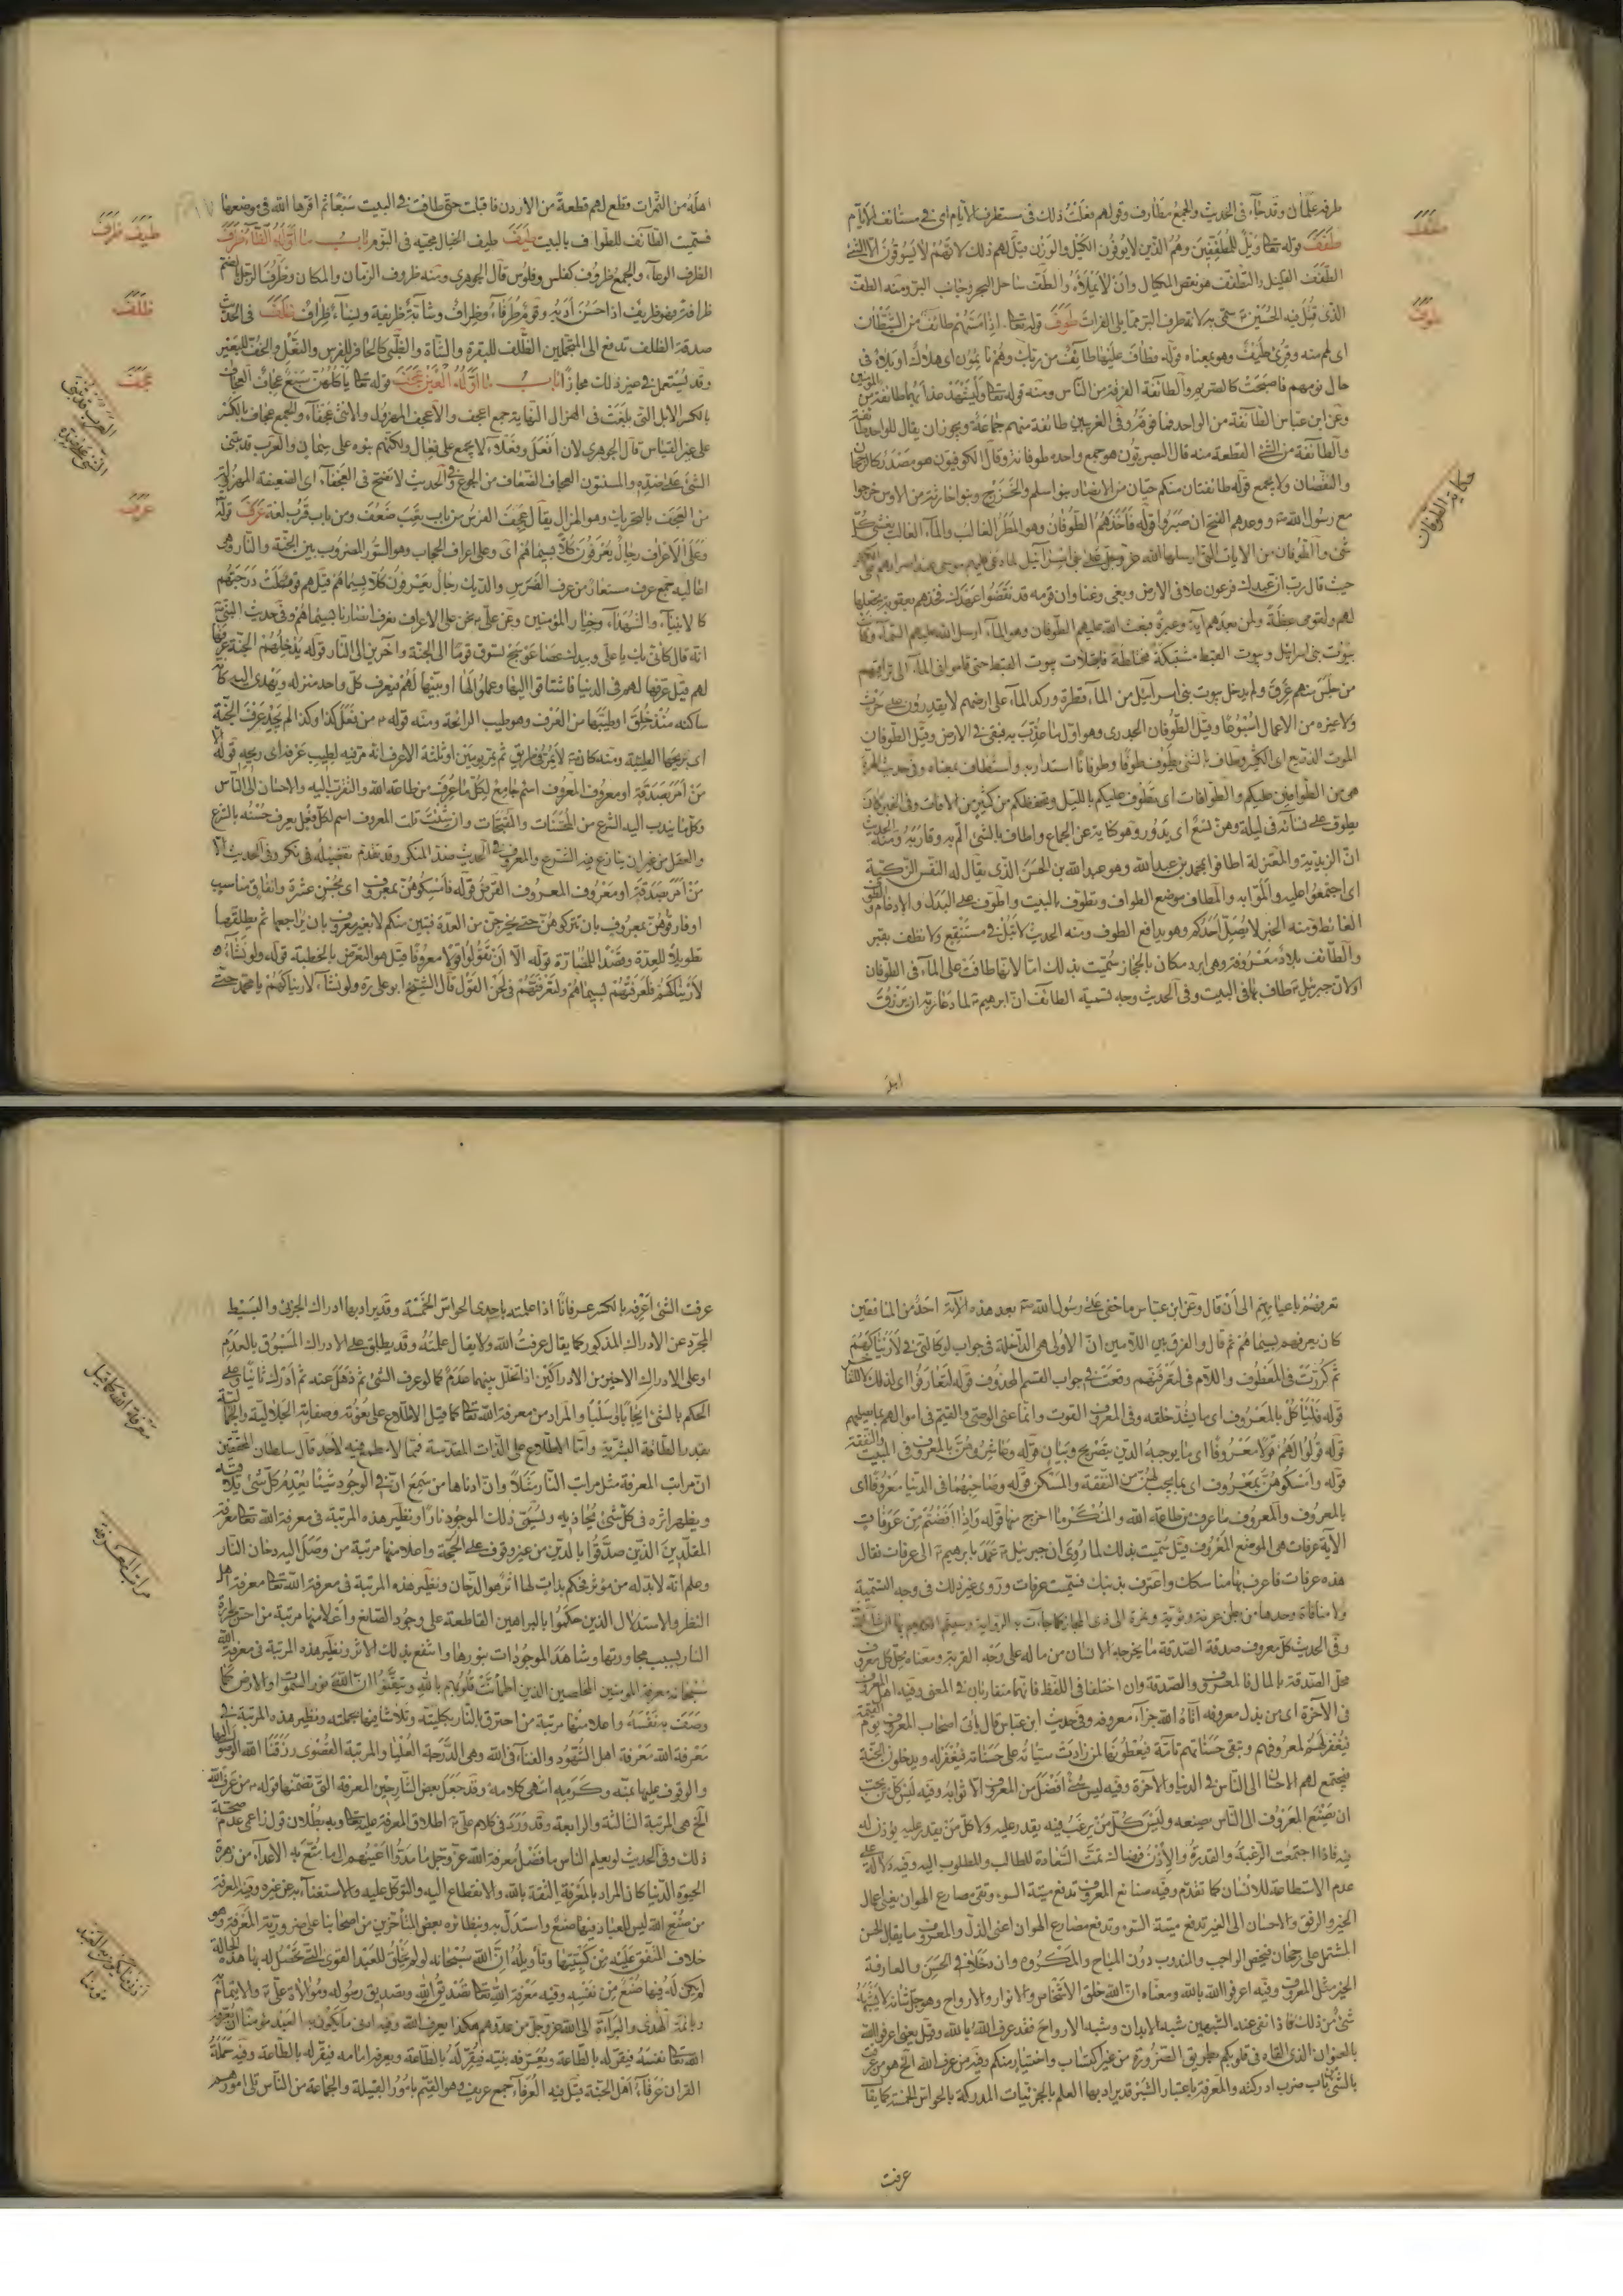 طرفه علمان وقد جاء فى الحديث والجمع مطارف وقولهم فعلت ذلك فى مستطرف الايام اى فى مستانف الايام
طفف قوله تعالى ويل للمطففين وهم الذين لا يوفون الكيل والوزن قيل لهم ذلك لانهم لا يسرقون الا الشئ
الطفيف القليل والتطفيف هو نقص المكيال وان لا يملأه والطف ساحل البحر وجانب البر ومنه الطف
الذى قتل فيه الحسين سمى به لانه طرف البر مما يلى الفرات طوف قوله تعالى اذا مسهم طائف من الشيطان
اى لمم منه وقرئ طيف وهو بمعناه قوله فطاف عليها طائف من ربك وهم نائمون اى هلاك او بلاء فى
حال نومهم فاصبحت كالصريم والطائفة الفرقة من الناس ومنه قوله تعالى وليشهد عذابهما طائفة من المؤمنين
وعن ابن عباس الطائفة من الواحد فما فوقه وفى الغريبين طائفة منهم جماعة ويجوز ان يقال للواحد طائفة
والطائفة من الشئ القطعة منه قال البصريون هو جمع واحده طوفانة وقال الكوفيون هو مصدر كالرجحان
والنقصان ولا يجمع قوله طائفتان منكم حيان من الانصار بنو اسلم والخزرج وبنو احارثة من الاوس خرجوا
مع رسول الله ووعدهم الفتح ان صبروا قوله فاخذهم الطوفان وهو المطر الغالب والماء الغالب يغشى كل
شئ والطوفان من الايات التى ارسلها الله عز وجل على بنى اسرائيل لما دعى عليهم موسى
حيث قال رب ان عبدك فرعون علا فى الارض وبغى وعتا وان قومه قد نقضوا عهدك فخذهم بعقوبة تجعلها
لهم ولقومى عظة ولمن بعدهم آية وعبرة فبعث الله عليهم الطوفان وهو الماء ارسل الله عليهم السماء وكانت
بيوت بنى اسرائيل وبيوت القبط مشتبكة مختلطة فامتلات بيوت القبط حتى قاموا فى الماء الى تراقيهم
من جلس منهم غرق ولم يدخل بيوت بنى اسرائيل من الماء قطرة وركد الماء على ارضهم لا يقدرون على حرث
ولا غيره من الاعمال اسبوعا وقيل الطوفان الجدرى وهو اول ما عذب به فبقى فى الارض وقيل الطوفان
الموت الذريع اى الكثير وطاف بالشئ يطوف طوفا وطوفانا استدار به واستطاف بمعناه وفى حديث الهرة
هى من الطوافين عليكم والطوافات اى تطوف عليكم بالليل وتحفظكم من كثير من الافات وفى الخبر كان
يطوف على نسائه فى ليلة وهن تسع اى يدور وهو كناية عن الجماع واطاف بالشئ الم به وقاربه ومنه الحديث
ان الزيدية والمعتزلة اطافوا بمحمد بن عبدالله وهو عبد الله بن الحسن الذى يقال له النفس الزكية
اى اجتمعوا عليه والموا به والمطاف موضع الطواف وتطوف بالبيت واطوف على البدل والادغام والطوف
الغائط ومنه الخبر لا يصلى احدكم وهو يدافع الطوف ومنه الحديث لا تبل فى مستنقع ولا تطف بقبر
والطائف بلاد معروفة وهى ابرد مكان بالحجاز سميت بذلك اما لانها طافت على الماء فى الطوفان
او لان جبرئيل طاف بها فى البيت وفى الحديث وجه تسمية الطائف ان ابرهيم لما دعا ربه ان يرزق
اهله
طفف
طوف
حكاية الطوفان
اهله من الثمرات قطع لهم قطعة من الاردن فاقبلت حتى طافت فى البيت سبعا ثم اقرها الله فى موضعها
فسميت الطائف للطواف بالبيت طيف طيف الخيال مجيئه فى النوم باب ما اوله الظاء ظرف
الظرف الوعاء والجمع ظروف كفلس وفلوس قال الجوهرى ومنه ظروف الزمان والمكان وظرف الرجل بالضم
ظرافة فهو ظريف اذا حسن ادبه وقوم ظرفاء وظراف وشابة ظريفة ونساء ظراف ظلف فى الحديث
صدقة الظلف تدفع الى المتجملين الظلف للبقرة والشاة والظبى كالحافر للفرس والبغل والخف للبعير
وقد يستعمل فى غير ذلك مجازا باب ما اوله العين عجف قوله تعالى ياكلهن سبع عجاف العجاف
بالكسر الابل التى بلغت فى الهزال النهاية جمع اعجف والاعجف المهزول والانثى عجفاء والجمع عجاف بالكسر
على غير القياس قال الجوهرى لان افعل وفعلاء لا يجمع على فعال ولكنهم بنوه على سمان والعرب قد تبنى
الشئ على ضده والمسنتون العجاف الضعاف من الجوع وفى الحديث لا تضح فى العجفاء اى الضعيفة المهزولة
من العجف بالتحريك وهو الهزال يقال عجف الفرس من باب تعب ضعف ومن باب قرب لغة عرف قوله
وعلى الاعراف رجال يعرفون كلا بسيماهم اى وعلى اعراف الحجاب وهو السور المضروب بين الجنة والنار وهى
اعاليه جمع عرف مستعار من عرف الفرس والديك رجال يعرفون كلا بسيماهم قيل هم قوم علت درجتهم
كالانبياء والشهداء وخيار المؤمنين وعن على نحن على الاعراف نعرف انصارنا بسيماهم وفى حديث النبى
انه قال كانى بك يا على وبيدك عصا عوسج تسوق قوما الى الجنة واخرين الى النار قوله يدخلهم الجنة عرفها
لهم قيل عرفها لهم فى الدنيا فاشتاقوا اليها وعملوا لها او بينها لهم فيعرف كل واحد منزله ويهدى اليه كانه
ساكنه منذ خلق او طيبها من العرف وهو طيب الرائحة ومنه قوله من فعل كذا وكذا لم يجد عرف الجنة
اى ريحها الطيبة ومنه كان لا يمر فى طريق ثم يمر يومين او ثلثة الا عرف انه مر فيه لطيب عرفه اى ريحه قوله
من امر بصدقة او معروف المعروف اسم جامع لكل ما عرف من طاعة الله والتقرب اليه والاحسان الى الناس
وكل ما يندب اليه الشرع من المحسنات والمقبحات وان شئت قلت المعروف اسم لكل فعل يعرف حسنه بالشرع
والعقل من غير ان ينازع فيه الشرع والمعروف فى الحديث ضد المنكر وقد تقدم تفصيله فى نكر وفى الحديث
من امر بصدقة او معروف المعروف القرض قوله فامسكوهن بمعروف اى بحسن عشرة وانفاق مناسب
او فارقوهن بمعروف بان تتركوهن حتى يخرجن من العدة فتبين منكم لا بغير معروف بان يراجعها ثم يطلقها
تطويلا للعدة وقصدا للمضارة قوله الا ان تقولوا قولا معروفا قيل هو التعريض بالخطبة قوله ولو نشاء
لاريناكهم فلعرفتهم بسيماهم ولتعرفنهم فى لحن القول قال الشيخ ابو على ره ولو نشاء لاريناكهم يا محمد حتى
طيف ظرف
ظلف
عجف
عرف
العرب قد تبنى
الشئ على ضده
تعرفهم باعيانهم الى ان قال وعن ابن عباس ما خفى على رسول الله بعد هذه الآية احد من المنافقين
كان يعرفهم بسيماهم ثم قال والفرق بين اللامين ان الاولى هى الداخلة فى جواب لو كالتى فى لاريناكهم
ثم كررت فى المعطوف واللام فى لتعرفنهم وقعت فى جواب القسم المحذوف قوله لتعارفوا اى
قوله فلياكل بالمعروف اى ما يسد خلقه وفى المعروف القوت وانما عنى الوصى والقيم فى اموالهم بما يصلحهم
قوله قولوا لهم قولا معروفا اى ما يوجبه الدين بتصريح وبيان قوله وعاشروهن بالمعروف فى المبيت والنفقة
قوله وامسكوهن بمعروف اى بما يجب لهن من النفقة والمسكن قوله وصاحبهما فى الدنيا معروفا اى
بالمعروف والمعروف ما عرف من طاعة الله والمنكر ما اخرج منها قوله واذا افضتم من عرفات
الآية عرفات هى الموضع المعروف قيل سميت بذلك لما روى ان جبرئيل عمد بابرهيم الى عرفات فقال
هذه عرفات فاعرف بها مناسكك واعترف بذنبك فسميت عرفات وروى غير ذلك فى وجه التسمية
وفى الحديث كل معروف صدقة الصدقة ما يخرجه الانسان من ماله على وجه القربة ومعناه محل كل معروف
محل الصدقة بالمال فالمعروف والصدقة وان اختلفا فى اللفظ فانهما متقاربان فى المعنى وفيه اهل المعروف
فى الآخرة اى من بذل معروفه اتاه الله جزاء معروفه وفى حديث ابن عباس قال ياتى اصحاب المعروف يوم القيمة
فيغفر لهم لمعروفهم وتبقى حسناتهم تامة فيعطونها لمن زادت سيئاته على حسناته فيغفر له ويدخلون الجنة
فيجتمع لهم الاحسان الى الناس فى الدنيا والآخرة وفيه ليس شئ افضل من المعروف الا ثوابه وفيه ليس كل من يحب
ان يصنع المعروف الى الناس يصنعه وليس كل من يرغب فيه يقدر عليه ولا كل من يقدر عليه يؤذن له
فيه فاذا اجتمعت الرغبة والقدرة والاذن فهنالك تمت السعادة للطالب والمطلوب اليه وفيه دلالة على
عدم الاستطاعة للانسان كما تقدم وفيه صنائع المعروف تدفع ميتة السوء وتقى مصارع الهوان يعنى اعمال
الخير والرفق والاحسان الى الغير تدفع ميتة السوء وتدفع مصارع الهوان اعنى الذل والمعروف ما يقابل الحسن
المشتمل على رجحان فيختص الواجب والمندوب دون المباح والمكروه وان دخلا فى الحسن والعارفة
الخير مثل المعروف وفيه اعرفوا الله بالله ومعناه ان الله خلق الاشخاص والانوار والارواح وهو جل شانه لا يشبهه
شئ من ذلك فاذا نفى عنه الشبهين شبه الابدان وشبه الارواح فقد عرف الله بالله وقيل يعنى اعرفوا الله
بالعنوان الذى القاه فى قلوبكم بطريق الضرورة من غير اكتساب واختيار منكم وفيه من عرف الله الخ هو من عرفت
بالشئ من باب ضرب ادركته والمعرفة باعتبار السير قد يراد بها العلم بالجزئيات المدركة بالحواس الخمس كما يقال
عرفت
عرفت الشئ اعرفه بالكسر عرفانا اذا علمته باحدى الحواس الخمسة وقد يراد بها ادراك الجزئى والبسيط
المجرد عن الادراك المذكور كما يقال عرفت الله ولا يقال علمته وقد يطلق على الادراك المسبوق بالعدم
او على الادراك الاخير من الادراكين اذا تخلل بينهما عدم كما لو عرف الشئ ثم ذهل عنه ثم ادرك ثانيا وعلى
الحكم بالشئ ايجابا او سلبا والمراد من معرفة الله تعالى كما قيل الاطلاع على نعوته وصفاته الجلالية والجمالية
بقدر الطاقة البشرية واما الاطلاع على الذات المقدسة فمما لا مطمع فيه لاحد قال سلطان المحققين
ان مراتب المعرفة مثل مراتب النار مثلا وان ادناها من سمع ان فى الوجود شيئا يعدم كل شئ يلاقيه
ويظهر اثره فى كل شئ يحاذيه ويسمى ذلك الموجود نارا ونظير هذه المرتبة فى معرفة الله تعالى معرفة
المقلدين الذين صدقوا بالدين من غير وقوف على الحجة واعلا منها مرتبة من وصل اليه دخان النار
وعلم انه لا بد له من مؤثر فحكم بذات لها اثر هو الدخان ونظير هذه المرتبة فى معرفة الله تعالى معرفة اهل
النظر والاستدلال الذين حكموا بالبراهين القاطعة على وجود الصانع واعلا منها مرتبة من احس بحرارة
النار بسبب مجاورتها وشاهد الموجودات بنورها وانتفع بذلك الاثر ونظير هذه المرتبة فى معرفة الله
سبحانه معرفة المؤمنين المخلصين الذين اطمأنت قلوبهم بالله وتيقنوا ان الله نور السموات والارض كما
وصف به نفسه واعلا منها مرتبة من احترق بالنار بكليته وتلاشا فيها بجملته ونظير هذه المرتبة فى
معرفة الله معرفة اهل الشهود والفناء فى الله وهى الدرجة العليا والمرتبة القصوى رزقنا الله الوصول اليها
والوقوف عليها بمنه وكرمه انتهى كلامه وقد جعل بعض الشارحين المعرفة التى تضمنها قوله من عرف الله
الخ هى المرتبة الثالثة والرابعة وقد ورد فى كلام على اطلاق المعرفة عليه تعالى وبه بطلان قول زاعمى عدم صحة
ذلك وفى الحديث لو يعلم الناس ما فضل معرفة الله عز وجل ما مدوا اعينهم الى ما متع به الاعداء من زهرة
الحيوة الدنيا كان المراد بالمعرفة الثقة بالله والانقطاع اليه والتوكل عليه والاستغناء به عن غيره وفيه المعرفة
من صنع الله ليس للعباد فيها صنع واستدل به ونظائره بعض المتأخرين من اصحابنا على ضرورية المعرفة وهو
خلاف المتفق عليه من كسبيتها وتاويله ان الله سبحانه لو لم يخلق للعبد القوى التى تحصل له بها هذه الحالة
لم يكن له فيها صنع من نفسه وفيه معرفة الله تعالى تصديق الله وتصديق رسوله وموالاة على والايتمام
به وبائمة الهدى والبراءة الى الله عز وجل من عدوهم هكذا يعرف الله وفيه ادنى ما يكون به العبد مؤمنا ان يعرفه
الله تعالى نفسه فيقر له بالطاعة ويعرفه نبيه فيقر له بالطاعة ويعرفه امامه فيقر له بالطاعة وفيه حملة
القران عرفاء اهل الجنة قيل فيه العرفاء جمع عريف وهو القيم بامور القبيلة والجماعة من الناس يلى امورهم
معرفة الله كما قيل
مراتب المعرفة
ادنى ما يكون به العبد
مؤمنا